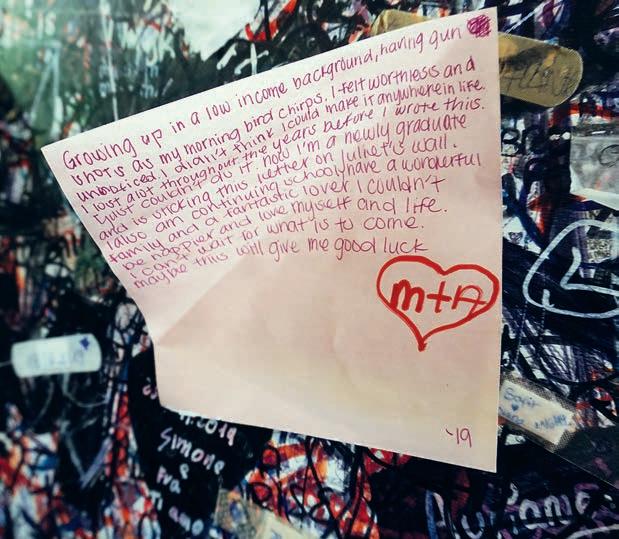 Growing up in a low income background, having gun
shots as my morning bird chirps, I felt worthless and
unnoticed. I didn't think I could make it anywhere in life.
lost alot throughout the years before I wrote this.
I just couldn't do it now I'm a newly graduate
and is sticking this letter on Juliet's wall.
I also am continuing school, have a wonderful
family and a fantastic lover I couldn't
be happier and love myself and life.
I can't wait for what is to come.
maybe this will give me good luck
m+A
'19
Simone